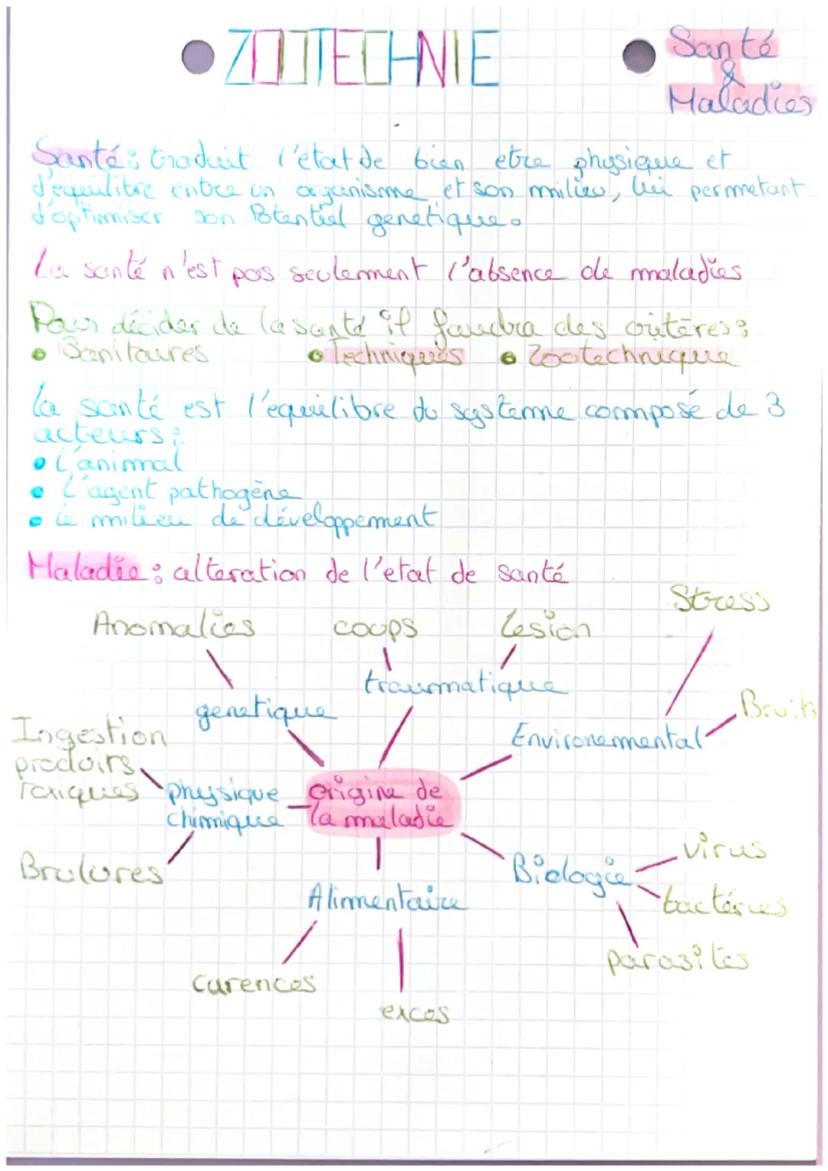 ZOOTECHNIE
Santé
&
Maladies
Santé : traduit l'état de bien etre physique et
d'equilibre entre un organisme et son milieu, lui permetant
d'optimiser son Potentiel genetique.
La santé n'est pas seulement l'absence de maladies
Pour décider de la santé il faudra des critères :
• Sanitaires • Techniques • Zootechnique
la santé est l'equilibre du systeme composé de 3
acteurs :
• L'animal
• L'agent pathogène
• Le milieu de développement
Maladie : alteration de l'etat de santé
Stress
Anomalies coups Lesion
traumatique
genetique
Bruits
Environemmental
Ingestion
produits
toxiques
physique
chimique
origine de
la maladie
Brulures
Biologie
virus
bactéries
parasites
Alimentaire
carences
exces